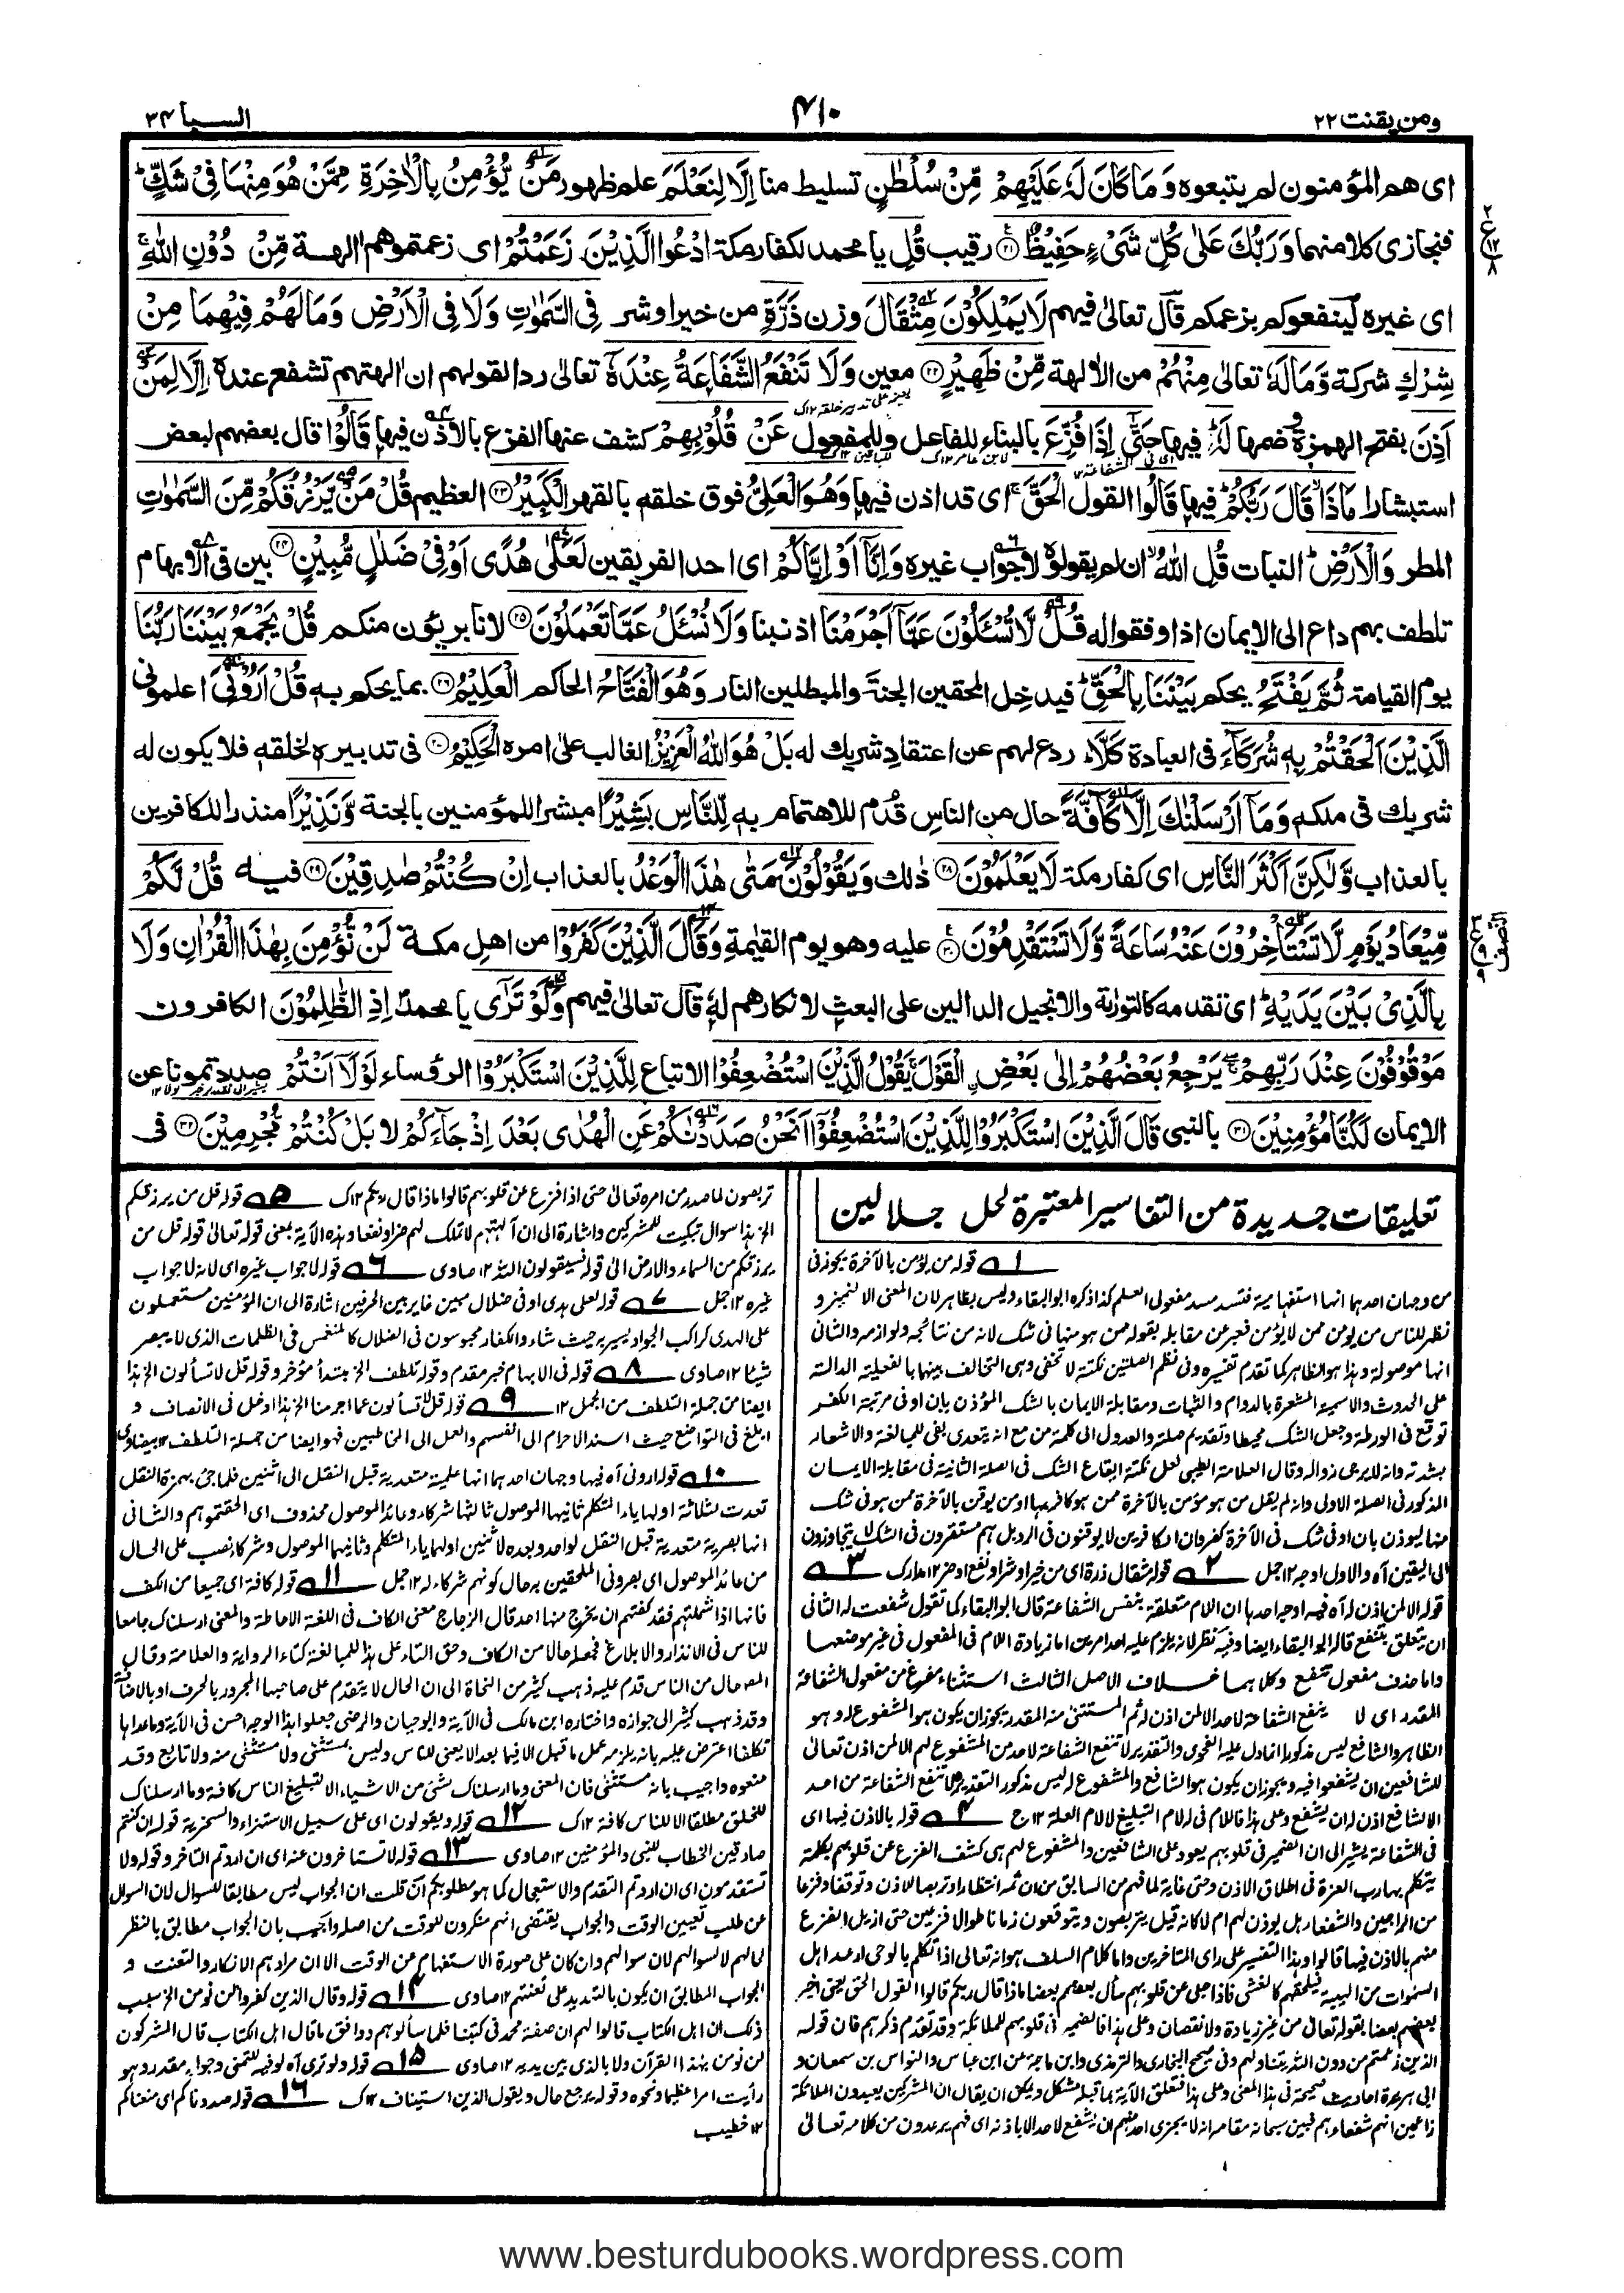 ومن يقنت ٢٢
٤١٠
السبا ٣٤
اى هم المؤمنون لم يتبعوه وَمَا كَانَ لَهٗ عَلَيْهِمْ مِّنْ سُلْطٰنٍ تسليط منا اِلَّا لِنَعْلَمَ علم ظهور مَنْ يُّؤْمِنُ بِالْاٰخِرَةِ مِمَّنْ هُوَ مِنْهَا فِيْ شَكٍّ ؕ
فنجازى كلا منهما وَرَبُّكَ عَلٰى كُلِّ شَيْءٍ حَفِيْظٌ ﴿٢١﴾ رقيب قُلِ يا محمد لكفار مكة ادْعُوا الَّذِيْنَ زَعَمْتُمْ اى زعمتموهم الهة مِّنْ دُوْنِ اللّٰهِ ۚ
اى غيره لينفعوكم بزعمكم قال تعالىٰ فيهم لَا يَمْلِكُوْنَ مِثْقَالَ وزن ذَرَّةٍ من خير او شر فِي السَّمٰوٰتِ وَلَا فِي الْاَرْضِ وَمَا لَهُمْ فِيْهِمَا مِنْ
شِرْكٍ شركة وَّمَا لَهٗ تعالىٰ مِنْهُمْ من الالهة مِّنْ ظَهِيْرٍ ﴿٢٢﴾ معين وَلَا تَنْفَعُ الشَّفَاعَةُ عِنْدَهٗٓ تعالىٰ ردا لقولهم ان الهتهم تشفع عنده اِلَّا لِمَنْ
اَذِنَ بفتح الهمزة وضمها لَهٗ ؕ فيها حَتّٰٓى اِذَا فُزِّعَ بالبناء للفاعل وللمفعول عَنْ قُلُوْبِهِمْ كشف عنها الفزع بالاذن فيها قَالُوْا قال بعضهم لبعض
استبشارا مَاذَا ۙ قَالَ رَبُّكُمْ ؕ فيها قَالُوا القول الْحَقَّ ۚ اى قد اذن فيها وَهُوَ الْعَلِيُّ فوق خلقه بالقهر الْكَبِيْرُ ﴿٢٣﴾ العظيم قُلْ مَنْ يَّرْزُقُكُمْ مِّنَ السَّمٰوٰتِ
المطر وَالْاَرْضِ ؕ النبات قُلِ اللّٰهُ ۙ ان لم يقولوه لا جواب غيره وَاِنَّآ اَوْ اِيَّاكُمْ اى احد الفريقين لَعَلٰى هُدًى اَوْ فِيْ ضَلٰلٍ مُّبِيْنٍ ﴿٢٤﴾ بين فى الابهام
تلطف بهم داع الى الايمان اذا وفقوا له قُلْ لَّا تُسْـَٔلُوْنَ عَمَّآ اَجْرَمْنَا اذنبنا وَلَا نُسْـَٔلُ عَمَّا تَعْمَلُوْنَ ﴿٢٥﴾ لانا بريئون منكم قُلْ يَجْمَعُ بَيْنَنَا رَبُّنَا
يوم القيامة ثُمَّ يَفْتَحُ يحكم بَيْنَنَا بِالْحَقِّ ؕ فيدخل المحقين الجنة والمبطلين النار وَهُوَ الْفَتَّاحُ الحاكم الْعَلِيْمُ ﴿٢٦﴾ بما يحكم به قُلْ اَرُوْنِيَ اعلمونى
الَّذِيْنَ اَلْحَقْتُمْ بِهٖ شُرَكَآءَ فى العبادة كَلَّا ؕ ردع لهم عن اعتقاد شريك له بَلْ هُوَ اللّٰهُ الْعَزِيْزُ الغالب علىٰ امره الْحَكِيْمُ ﴿٢٧﴾ فى تدبيره لخلقه فلا يكون له
شريك فى ملكه وَمَآ اَرْسَلْنٰكَ اِلَّا كَآفَّةً حال من الناس قدم للاهتمام به لِّلنَّاسِ بَشِيْرًا مبشرا للمؤمنين بالجنة وَّنَذِيْرًا منذرا للكافرين
بالعذاب وَّلٰكِنَّ اَكْثَرَ النَّاسِ اى كفار مكة لَا يَعْلَمُوْنَ ﴿٢٨﴾ ذلك وَيَقُوْلُوْنَ مَتٰى هٰذَا الْوَعْدُ بالعذاب اِنْ كُنْتُمْ صٰدِقِيْنَ ﴿٢٩﴾ فيه قُلْ لَّكُمْ
مِّيْعَادُ يَوْمٍ لَّا تَسْتَاْخِرُوْنَ عَنْهُ سَاعَةً وَّلَا تَسْتَقْدِمُوْنَ ﴿٣٠﴾ عليه وهو يوم القيٰمة وَقَالَ الَّذِيْنَ كَفَرُوْا من اهل مكة لَنْ نُّؤْمِنَ بِهٰذَا الْقُرْاٰنِ وَلَا
بِالَّذِيْ بَيْنَ يَدَيْهِ ؕ اى تقدمه كالتورٰية والانجيل الدالين على البعث لانكارهم له قال تعالىٰ فيهم وَلَوْ تَرٰٓى يا محمد اِذِ الظّٰلِمُوْنَ الكافرون
مَوْقُوْفُوْنَ عِنْدَ رَبِّهِمْ ۚ يَرْجِعُ بَعْضُهُمْ اِلٰى بَعْضِ ۣالْقَوْلَ ۚ يَقُوْلُ الَّذِيْنَ اسْتُضْعِفُوْا الاتباع لِلَّذِيْنَ اسْتَكْبَرُوْا الرؤساء لَوْلَآ اَنْتُمْ صددتمونا عن
الايمان لَكُنَّا مُؤْمِنِيْنَ ﴿٣١﴾ بالنبى قَالَ الَّذِيْنَ اسْتَكْبَرُوْا لِلَّذِيْنَ اسْتُضْعِفُوْٓا اَنَحْنُ صَدَدْنٰكُمْ عَنِ الْهُدٰى بَعْدَ اِذْ جَآءَكُمْ لا بَلْ كُنْتُمْ مُّجْرِمِيْنَ ﴿٣٢﴾ فى
تعليقات جديدة من التفاسير المعتبرة لحل جلالين
١ قوله من يؤمن بالآخرة يجوز فى
من وجهان احدهما انها استفهامية فتسد مسد مفعولى العلم كذا ذكره ابو البقاء وليس بظاهر لان المعنى الا لنميز و
نظهر للناس من يؤمن ممن لا يؤمن فعبر عن مقابله بقوله ممن هو منها فى شك لانه من نتائجه ولوازمه والثانى
انها موصولة وهذا هو الظاهر كما تقدم تفسيره وفى نظم الصلتين نكتة لا تخفى وهى التخالف بينهما بالفعلية الدالة
على الحدوث والاسمية المشعرة بالدوام والثبات ومقابلة الايمان بالشك المؤذن بان ادنى مرتبة الكفر
توقع فى الورطة وجعل الشك محيطا وتقديم صلته والعدول الى كلمة من مع انه يتعدى بفى للمبالغة والاشعار
بشدته وانه لا يرجى زواله وقال العلامة الطيبى لعل نكتة ايقاع الشك فى الصلة الثانية فى مقابلة الايمان
المذكور فى الصلة الاولى وانه لم يقل من هو مؤمن بالآخرة ممن هو كافر بها او من يوقن بالآخرة ممن هو فى شك
منها ليؤذن بان ادنى شك فى الآخرة كفر وان الكافرين لا يوقنون فى الرد بل هم مستقرون فى الشك لا يتجاوزون
الى اليقين آه والاول اوجه ١٢ جمل ٢ قوله مثقال ذرة اى من خير او شر او نفع او ضر ١٢ مدارك ٣
قوله الا لمن اذن له آه فيه اوجه احدها ان اللام متعلقة بنفس الشفاعة قال ابو البقاء كما تقول شفعت له الثانى
ان يتعلق بتنفع قاله ابو البقاء ايضا وفيه نظر لانه يلزم عليه احد امرين اما زيادة اللام فى المفعول فى غير موضعها
واما حذف مفعول تنفع وكلاهما خلاف الاصل الثالث استثناء مفرغ من مفعول الشفاعة
المقدر اى لا تنفع الشفاعة لاحد الا لمن اذن له ثم المستثنى منه المقدر يجوز ان يكون هو المشفوع له وهو
الظاهر والشافع ليس مذكورا انما دل عليه الفحوى والتقدير لا تنفع الشفاعة لاحد من المشفوع لهم الا لمن اذن تعالى
للشافعين ان يشفعوا فيه ويجوز ان يكون هو الشافع والمشفوع له ليس مذكور التقدير لا تنفع الشفاعة من احد
الا لشافع اذن له ان يشفع وعلى هذا فاللام فى له لام التبليغ لا لام العلة ١٢ ج ٤ قوله بالاذن فيها اى
فى الشفاعة يشير الى ان الضمير فى قلوبهم يعود على الشافعين والمشفوع لهم هى كشف الفزع عن قلوبهم بكلمة
يتكلم بها رب العزة فى اطلاق الاذن وحتى غاية لما فهم من السابق من ان ثمه انتظارا وتربصا للاذن وتوقفا وفزعا
من الراجين والشفعاء هل يؤذن لهم ام لا كانه قيل يتربصون ويتوقعون زمانا طويلا فزعين حتى ازيل الفزع
منهم بالاذن فيها قالوا وهذا التفسير على راى المتاخرين واما كلام السلف هو انه تعالى اذا تكلم بالوحى ارعد اهل
السموات من الهيبة فيلحقهم كالغشى فاذا جلى عن قلوبهم سأل بعضهم بعضا ماذا قال ربكم قالوا القول الحق يعنى اخبر
بعضهم بعضا بقوله تعالى من غير زيادة ولا نقصان وعلى هذا فالضمير فى قلوبهم للملائكة وقد تقدم ذكرهم فان قوله
الذين زعمتم من دون الله يتناولهم وفى صحيح البخارى والترمذى وابن ماجة عن ابن عباس والنواس بن سمعان و
ابى هريرة احاديث صحيحة فى هذا المعنى وعلى هذا فتعلق الآية بما قبله مشكل ويمكن ان يقال ان المشركين يعبدون الملائكة
زاعمين انهم شفعاءهم فبين سبحانه مقامه انه لا يجترى احد منهم ان يشفع لاحد الا باذنه اى فهم يرعدون من كلامه تعالى
تربصون لما صدر من امره تعالى حتى اذا فزع عن قلوبهم قالوا ماذا قال ربكم ١٢ ك ٥ قوله قل من يرزقكم
الخ هذا سوال تبكيت للمشركين واشارة الى ان آلهتهم لا تملك لهم ضرا ونفعا وهذه الآية بمعنى قوله تعالى قوله قل من
يرزقكم من السماء والارض الى قوله فسيقولون الله ١٢ صاوى ٦ قوله لا جواب غيره اى لانه لا جواب
غيره ١٢ جمل ٧ قوله لعلى هدى او فى ضلال مبين غاير بين الحرفين اشارة الى ان المؤمنين مستعملون
على الهدى كراكب الجواد يسير به حيث شاء والكفار محبوسون فى الضلال كالمنغمس فى الظلمات الذى لا يبصر
شيئا ١٢ صاوى ٨ قوله فى الابهام خبر مقدم وقوله تلطف الخ مبتدأ مؤخر وقوله قل لا تسألون الخ هذا
ايضا من جملة التلطف من الجمل ١٢ ٩ قوله قل لا تسألون عما اجرمنا الخ هذا ادخل فى الانصاف و
ابلغ فى التواضع حيث اسند الاجرام الى انفسهم والعمل الى المخاطبين فهو ايضا من جملة التلطف ١٢ بيضاوى
١٠ قوله ارونى آه فيها وجهان احدهما انها علمية متعدية قبل النقل الى اثنين فلما جئ بهمزة النقل
تعدت لثلاثة اولها ياء المتكلم ثانيها الموصول ثالثها شركاء وعائد الموصول محذوف اى الحقتموهم والثانى
انها بصرية متعدية قبل النقل لواحد وبعده لاثنين اولهما ياء المتكلم وثانيهما الموصول وشركاء نصب على الحال
من عائد الموصول اى بصرونى الملحقين به حال كونهم شركاء له ١٢ جمل ١١ قوله كافة اى جميعا من الكف
فانها اذا شملتهم فقد كفتهم ان يخرج منها احد قال الزجاج معنى الكاف فى اللغة الاحاطة والمعنى ارسلناك جامعا
للناس فى الانذار والابلاغ فجعله حالا من الكاف وحق التاء على هذا للمبالغة كتاء الرواية والعلامة وقال
المص حال من الناس قدم عليه ذهب كثير من النحاة الى ان الحال لا يتقدم على صاحبها المجرور بالحرف او بالاضافة
وقد ذهب كثير الى جوازه واختاره ابن مالك فى الآية وابو حيان والرضى جعلوا هذا الوجه احسن فى الآية وما عداها
تكلفا اعترض عليه بانه يلزمه عمل ما قبل الا فيما بعدها يعنى للناس وليس بمستثنى ولا مستثنى منه ولا تابع وقد
منعوه واجيب بانه مستثنى فان المعنى وما ارسلناك لشئ من الاشياء الا لتبليغ الناس كافة وما ارسلناك
للخلق مطلقا الا للناس كافة ١٢ ك ١٢ قوله ويقولون اى على سبيل الاستهزاء والسخرية قوله ان كنتم
صادقين الخطاب للنبى والمؤمنين ١٢ صاوى ١٣ قوله لا تستاخرون عنه اى ان اردتم التاخر وقوله ولا
تستقدمون اى ان اردتم التقدم والاستعجال كما هو مطلوبكم ان قلت ان الجواب ليس مطابقا للسوال لان السوال
عن طلب تعيين الوقت والجواب يقتضى انهم منكرون للوقت من اصله واجيب بان الجواب مطابق بالنظر
لحالهم لا لسوالهم لان سوالهم وان كان على صورة الاستفهام عن الوقت الا ان مرادهم الانكار والتعنت و
الجواب المطابق ان يكون بالتهديد على تعنتهم ١٢ صاوى ١٤ قوله وقال الذين كفروا لن نؤمن الخ سبب
ذلك ان اهل الكتاب قالوا لهم ان صفة محمد فى كتبنا فلما سألوهم ووافق ما قال اهل الكتاب قال المشركون
لن نؤمن بهذا القرآن ولا بالذى بين يديه ١٢ صاوى ١٥ قوله ولو ترى آه لو فيه للتمنى وجوابه مقدر وهو
رأيت امرا عظيما ونحوه وقوله يرجع حال ويقول الذين استيناف ١٢ ك ١٦ قوله صددناكم اى منعناكم
١٢ خطيب
www.besturdubooks.wordpress.com